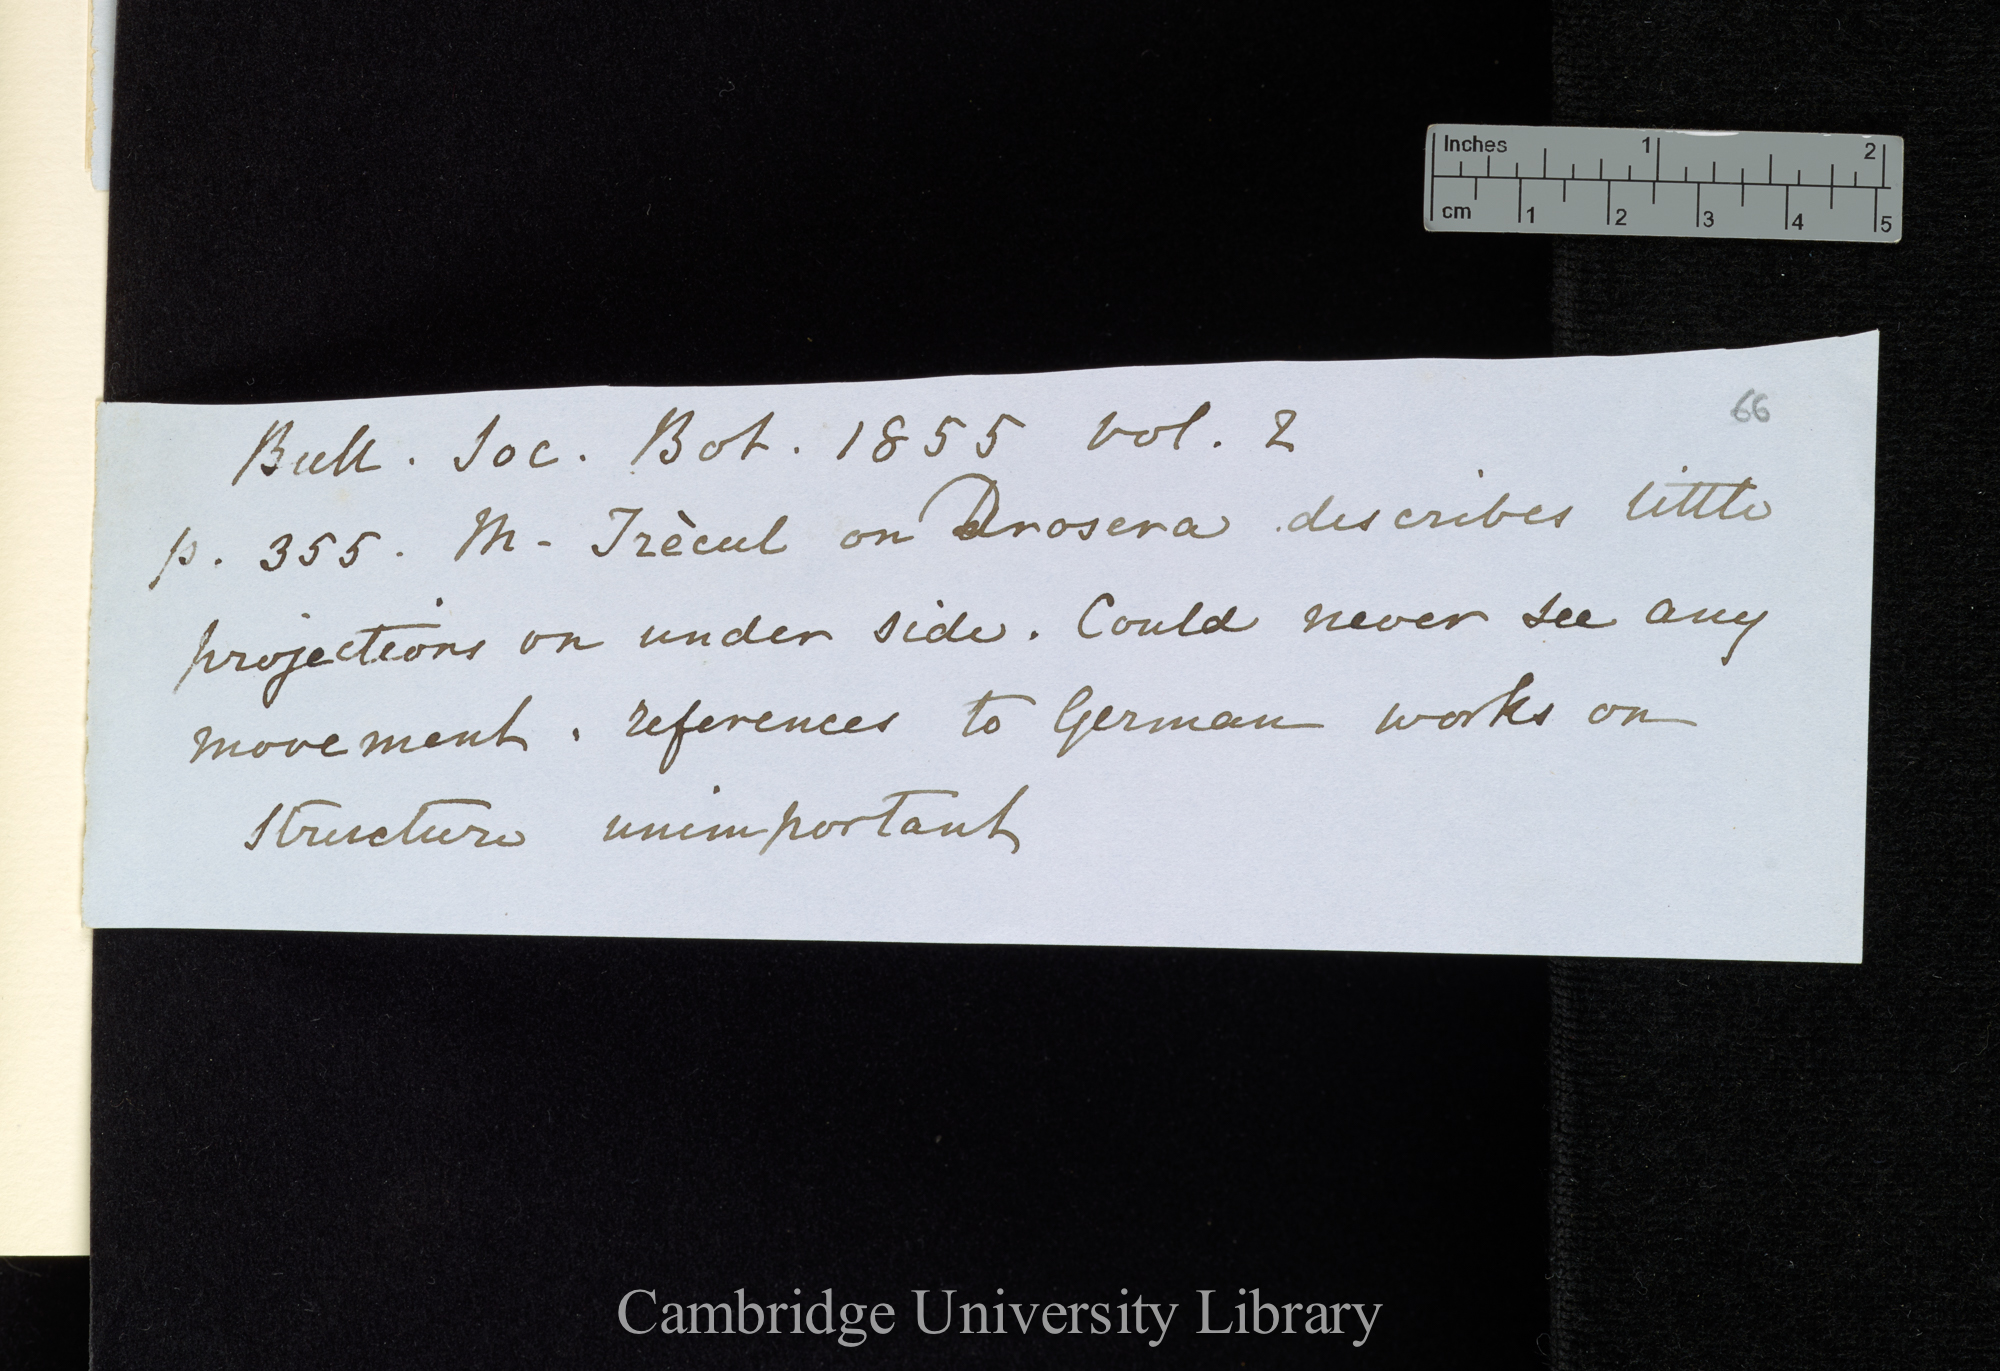 Inches 1 2
cm 1 2 3 4 5
66
Bull. Soc. Bot. 1855 vol. 2
p. 355. M - Trècul on Drosera describes little
projections on under side. Could never see any
movement. references to German works on
structure unimportant
Cambridge University Library